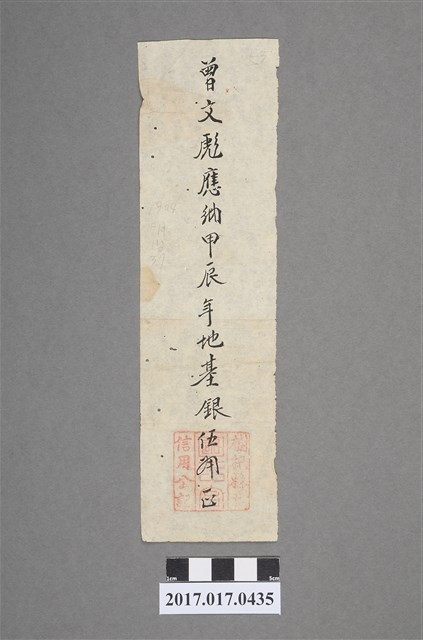 曾文彪應納甲辰年地基銀伍角正
信用公
1cm
5cm
2017.017.0435